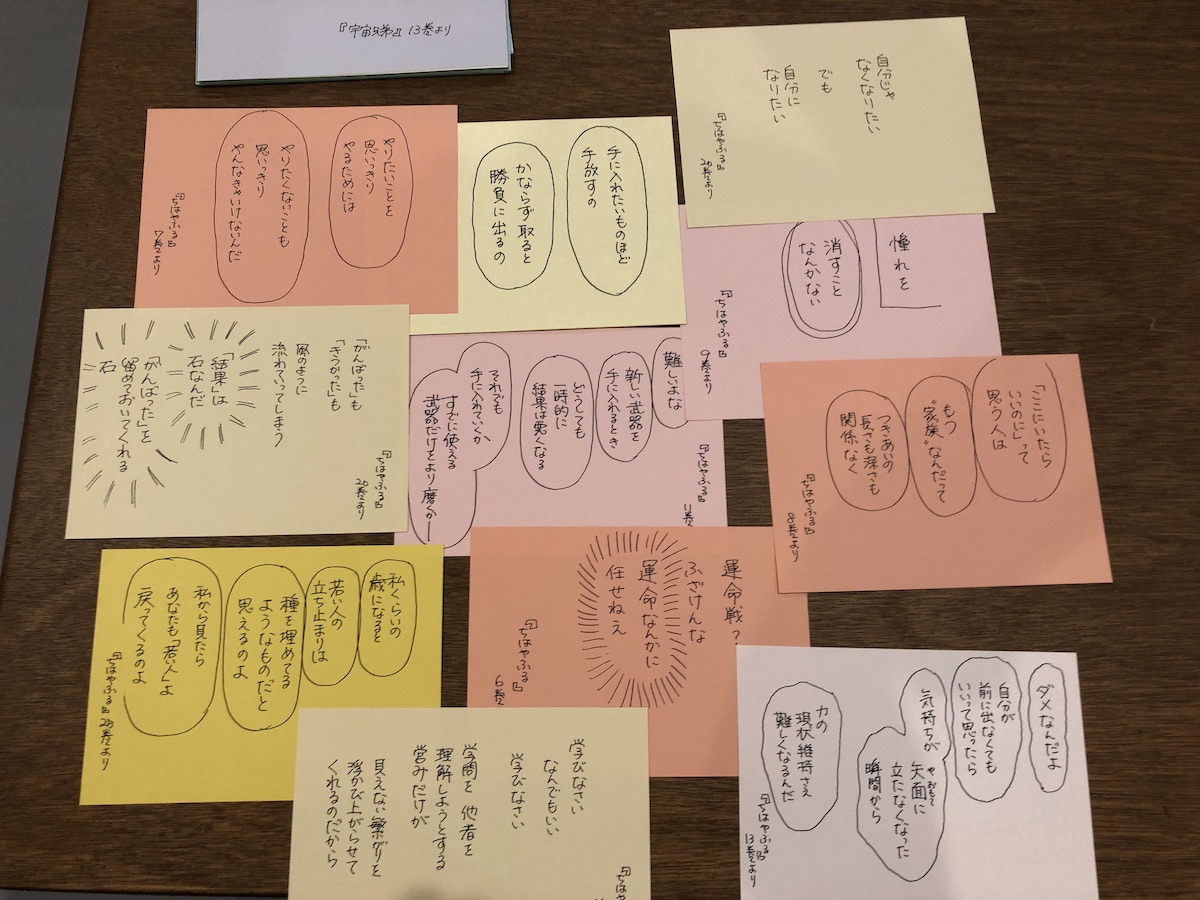 『宇宙兄弟』 13巻より
自分じゃ
なくなりたい
でも
自分に
なりたい
『ちはやふる』
26巻より
やりたいことを
思いっきり
やるためには
やりたくないことも
思いっきり
やんなきゃいけないんだ
『ちはやふる』
7巻より
手に入れたいものほど
手放すの
かならず取ると
勝負に出るの
憧れを
消すこと
なんかない
『ちはやふる』
9巻より
「がんばった」も
「きつかった」も
風のように
流れていってしまう
「結果」は
石なんだ
「がんばった」を
留めておいてくれる
石
『ちはやふる』
20巻より
難しいよな
新しい武器を
手に入れるとき
どうしても
一時的に
結果は悪くなる
それでも
手に入れていくか
すでに使える
武器だけをより磨くか―
『ちはやふる』
11巻
「ここにいたら
いいのに」って
思う人は
もう
“家族”なんだって
つきあいの
長さも深さも
関係なく
『ちはやふる』
8巻より
私くらいの
歳になると
若い人の
立ち止まりは
種を埋めてる
ようなものだと
思えるのよ
私から見たら
あなたも「若い人」よ
戻ってくるのよ
『ちはやふる』
28巻より
運命戦?
ふざけんな
運命なんかに
任せねえ
『ちはやふる』
6巻
ダメなんだよ
自分が
前に出なくても
いいって思ったら
気持ちが
矢面に
やおもて
立たなくなった
瞬間から
力の
現状維持さえ
難しくなるんだ
『ちはやふる』
13巻より
学びなさい
なんでもいい
学びなさい
学問を 他者を
理解しようとする
営みだけが
見えない繋がりを
浮かび上がらせて
くれるのだから
『ちはやふる